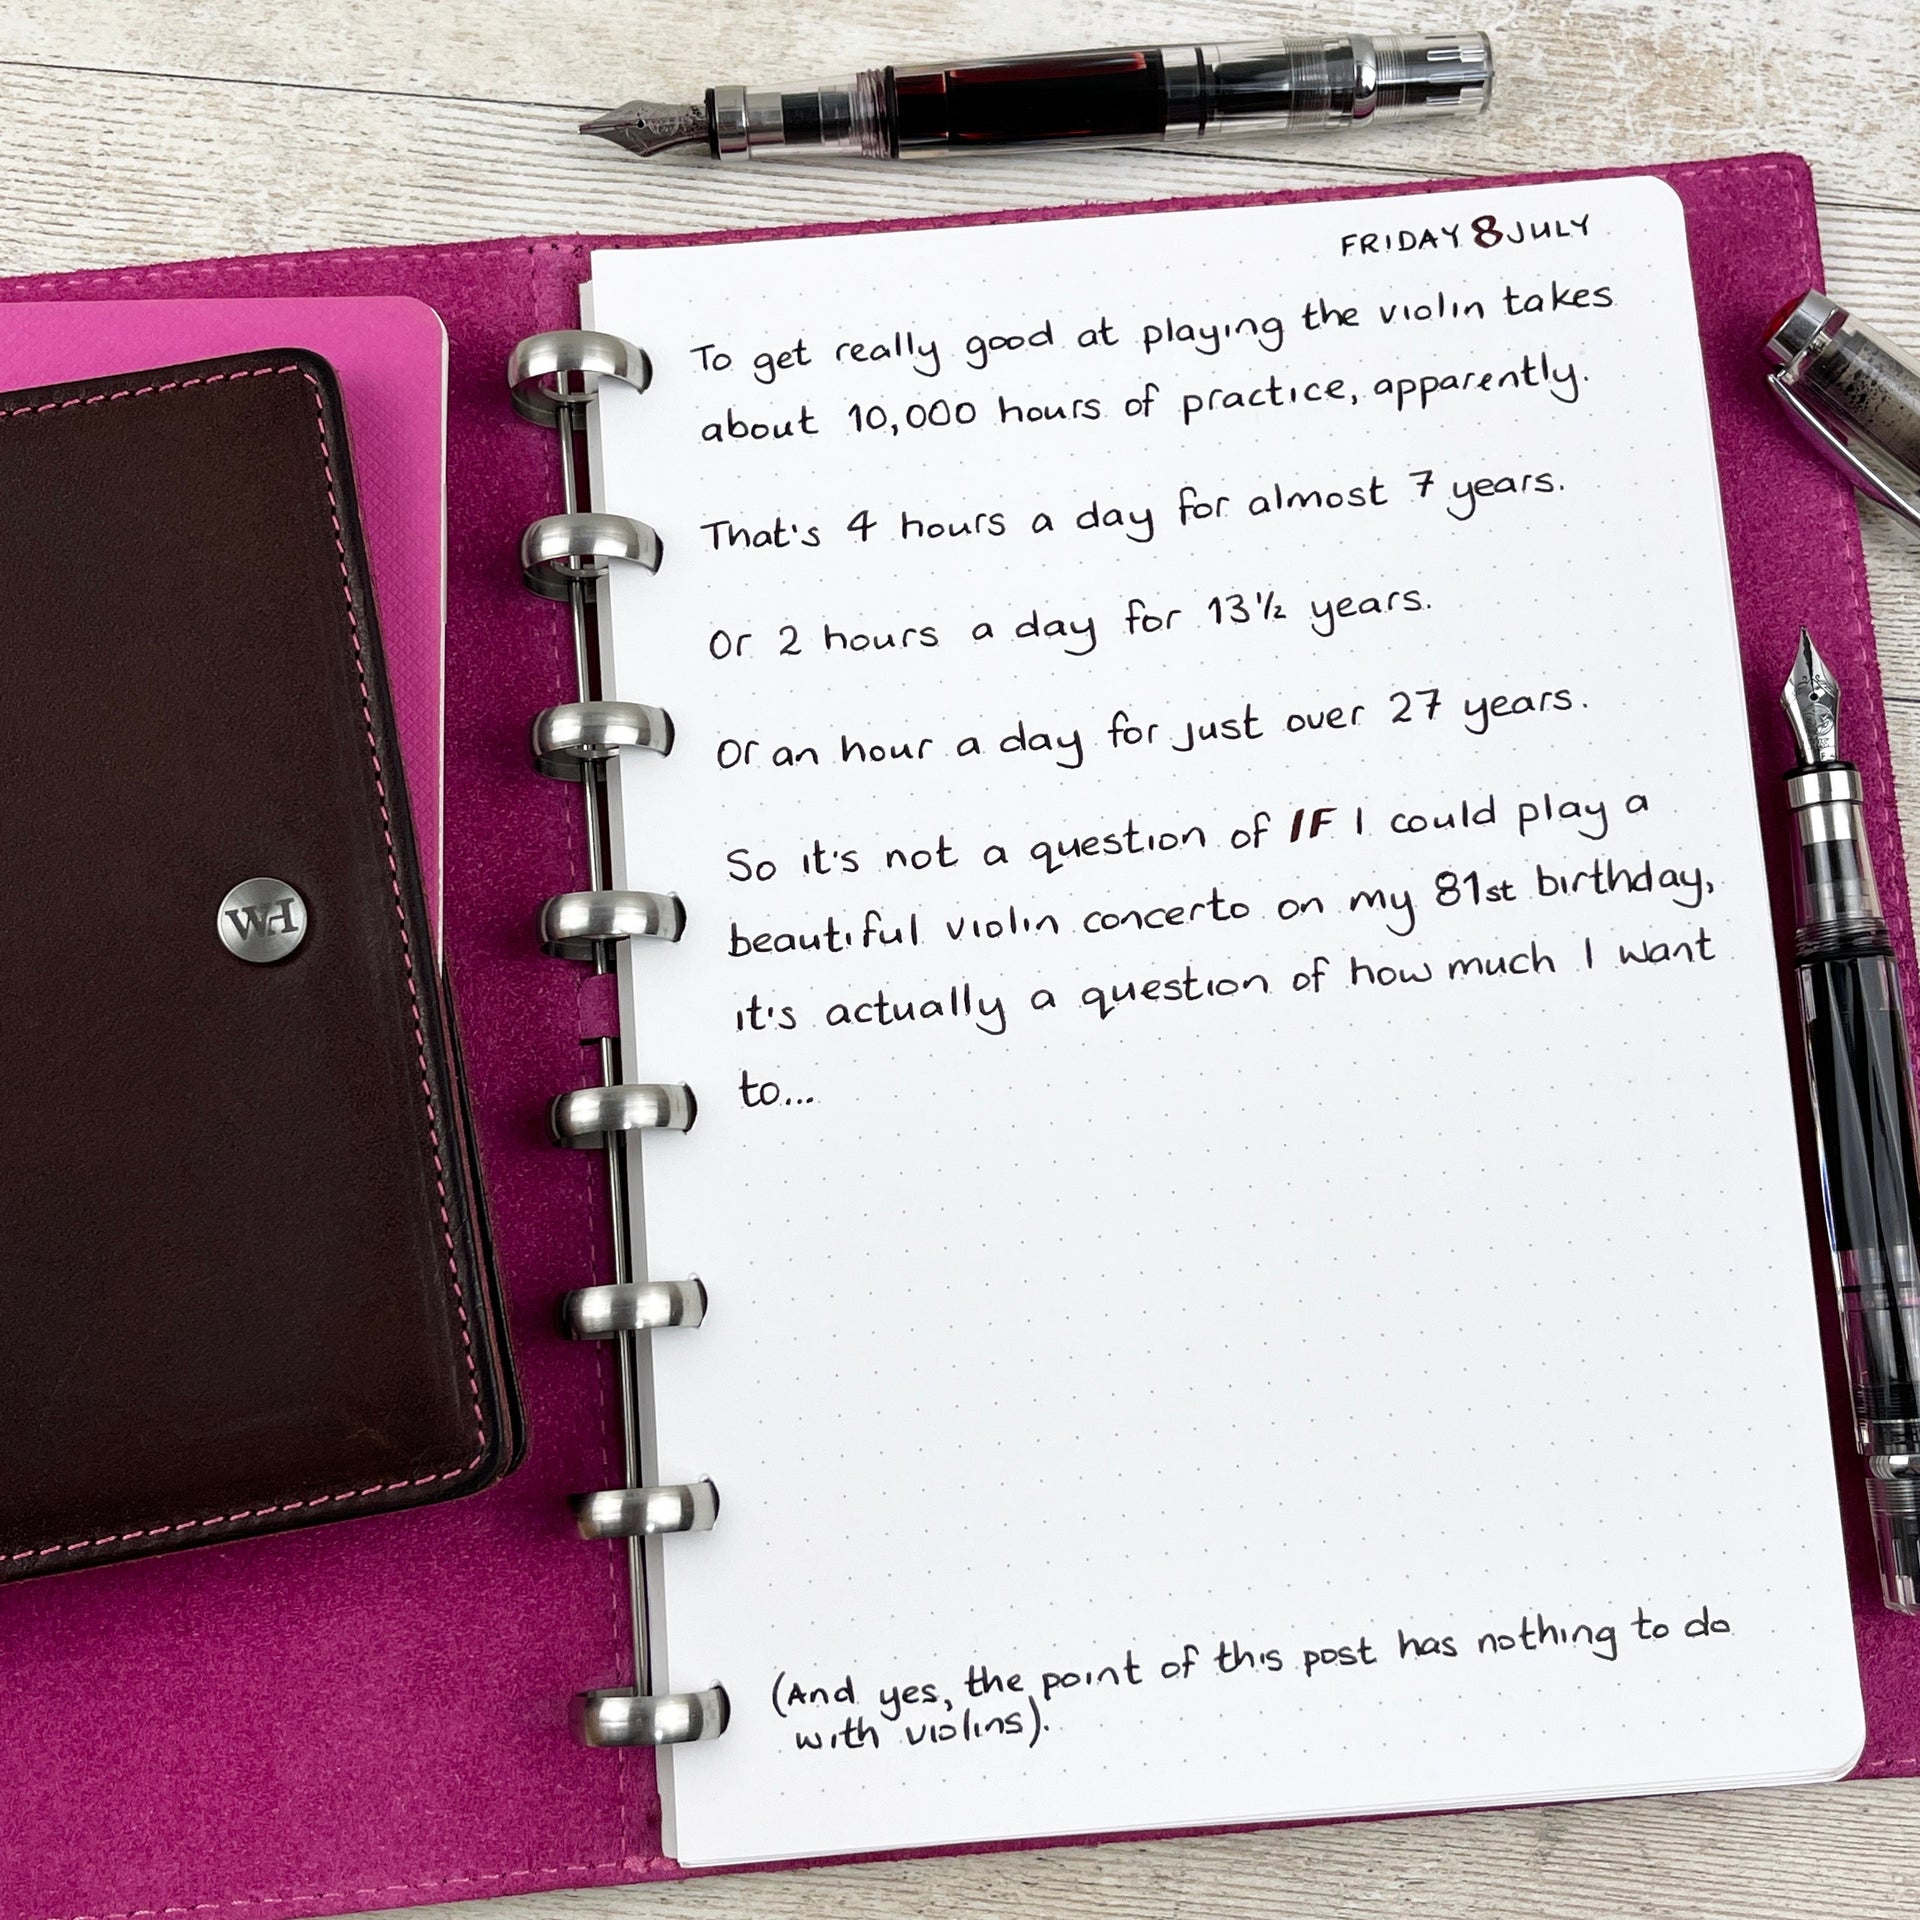 FRIDAY 8 JULY
To get really good at playing the violin takes
about 10,000 hours of practice, apparently.
That's 4 hours a day for almost 7 years.
Or 2 hours a day for 13½ years.
Or an hour a day for just over 27 years.
So it's not a question of IF I could play a
beautiful violin concerto on my 81st birthday,
it's actually a question of how much I want
to...
(And yes, the point of this post has nothing to do
with violins).
WH